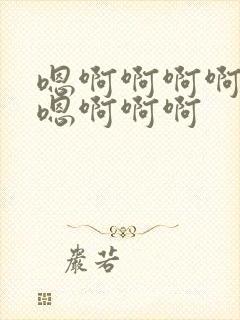 嗯啊啊啊啊
嗯啊啊啊
嚴若